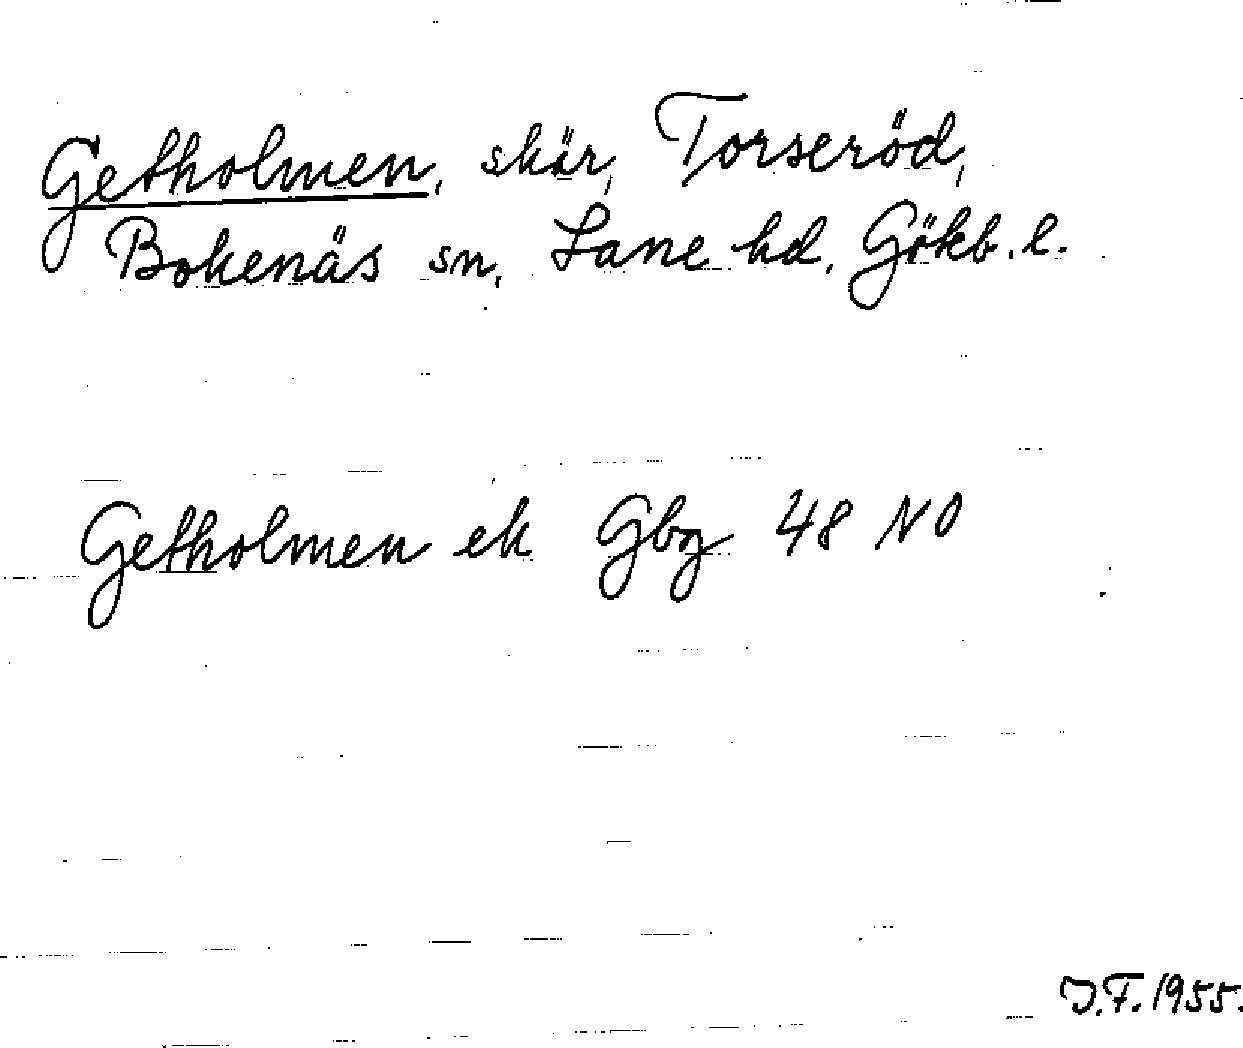 Getholmen, skär, Torseröd,
Bokenäs sn, Lane hd, Gökb. l.
Getholmen ek Gbg 48 NO
J.F. 1955.